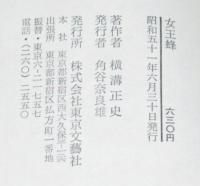 女王蜂　六三〇円
昭和五十一年六月三十日発行
著作者　横溝正史
発行者　角谷奈良雄
発行所　株式会社東京文藝社
本社　東京都新宿区西大久保
出張所　東京都新宿区払方町一番地
振替・東京六・二一七五七
電話・(二六〇)二五五〇